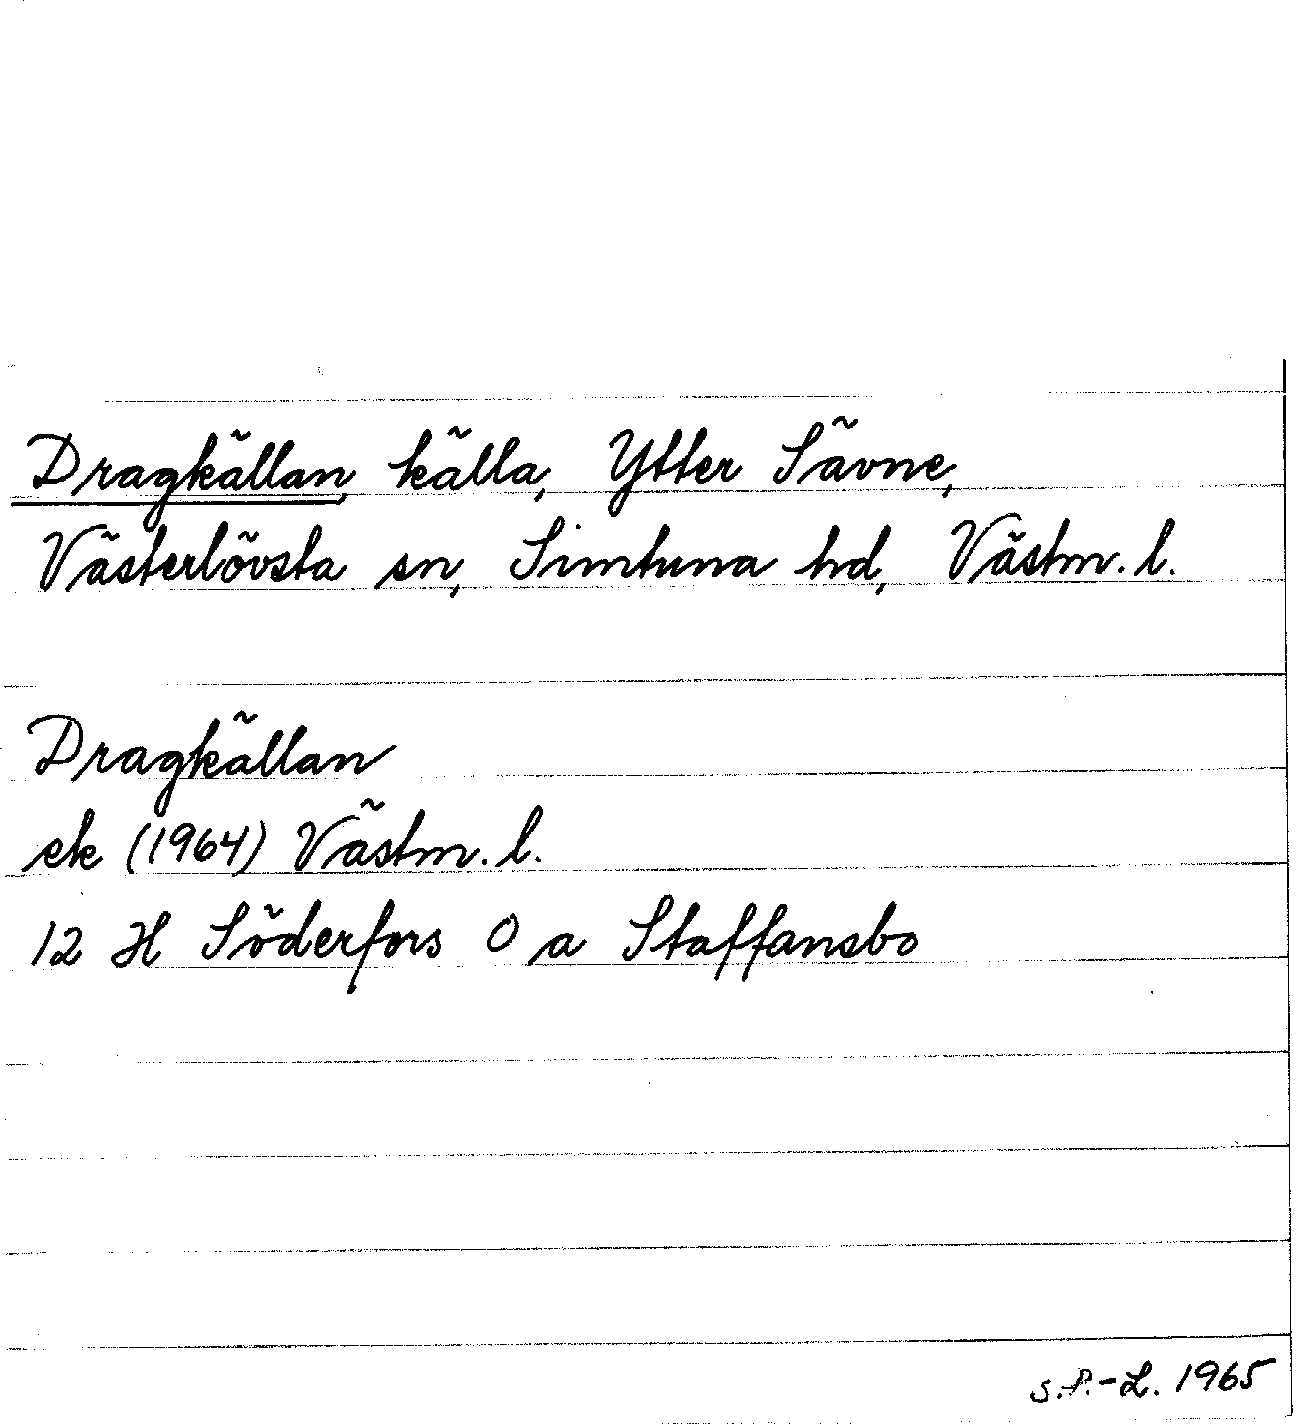 Dragkällan, källa, Ytter Sävne,
Västerlövsta sn, Simtuna hd, Västm. l.
Dragkällan
ek (1964) Västm. l.
12 H Söderfors 0 a Staffansbo
S.P.-L. 1965